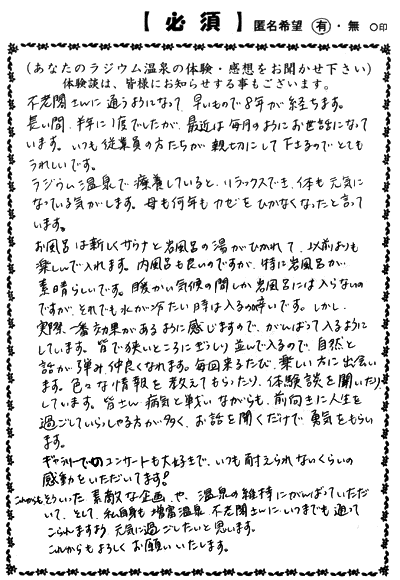 【必須】 匿名希望 有・無 ○印
(あなたのラジウム温泉の体験・感想をお聞かせ下さい)
体験談は、皆様にお知らせする事もございます。
不老閣さんに通うようになって、早いもので8年が経ちます。
長い間、半年に1度でしたが、最近は毎月のようにお世話になって
います。いつも従業員の方たちが親切にして下さるのでとても
うれしいです。
ラジウム温泉で療養していると、リラックスでき、体も元気に
なっている気がします。母も何年もカゼをひかなくなったと言って
います。
お風呂は新しくサウナと岩風呂の湯がひかれて、以前よりも
楽しんで入れます。内風呂も良いのですが、特に岩風呂が
素晴らしいです。暖かい気候の間しか岩風呂には入らないの
ですが、それでも水が冷たい時は入るの辛いです。しかし、
実際、一番効果があるように感じますので、がんばって入るように
しています。皆で狭いところにぎっしり並んで入るので、自然と
話が弾み仲良くなれます。毎回来るたび、楽しい方に出会い
ます。色々な情報を教えてもらったり、体験談を聞いたり
しています。皆さん病気と戦いながらも、前向きに人生を
過ごしていらしゃる方が多く、お話を聞くだけで勇気をもらい
ます。
ギャラリーでのコンサートも大好きで、いつも耐えられないくらいの
感動をいただいてます!
これからもそういった素敵な企画や、温泉の維持にがんばっていただ
いて、そして、私自身も増富温泉 不老閣さんにいつまでも通って
こられますよう元気に過ごしたいと思います。
これからもよろしくお願いいたします。